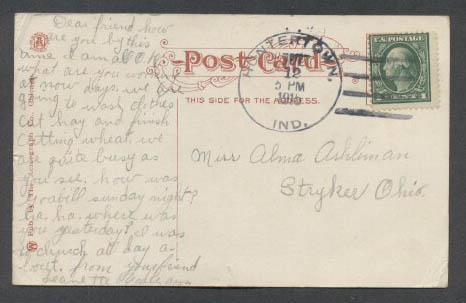 Dear friend how
are you by this
time I am all O.K.
what are you working
at now days. we are
going to wash clothes
cut hay and finish
cutting wheat. we
are quite busy as
you see. how was
sunday night?
ha. ha. where was
you yesterday? I was
to church all day a-
bout. from your friend
Post Card
THIS SIDE FOR THE ADDRESS.
HUNTERTOWN,
12
5 PM
IND.
U.S. POSTAGE
1 CENT 1
Miss Alma Ashliman
Stryker Ohio.
Pub. by The